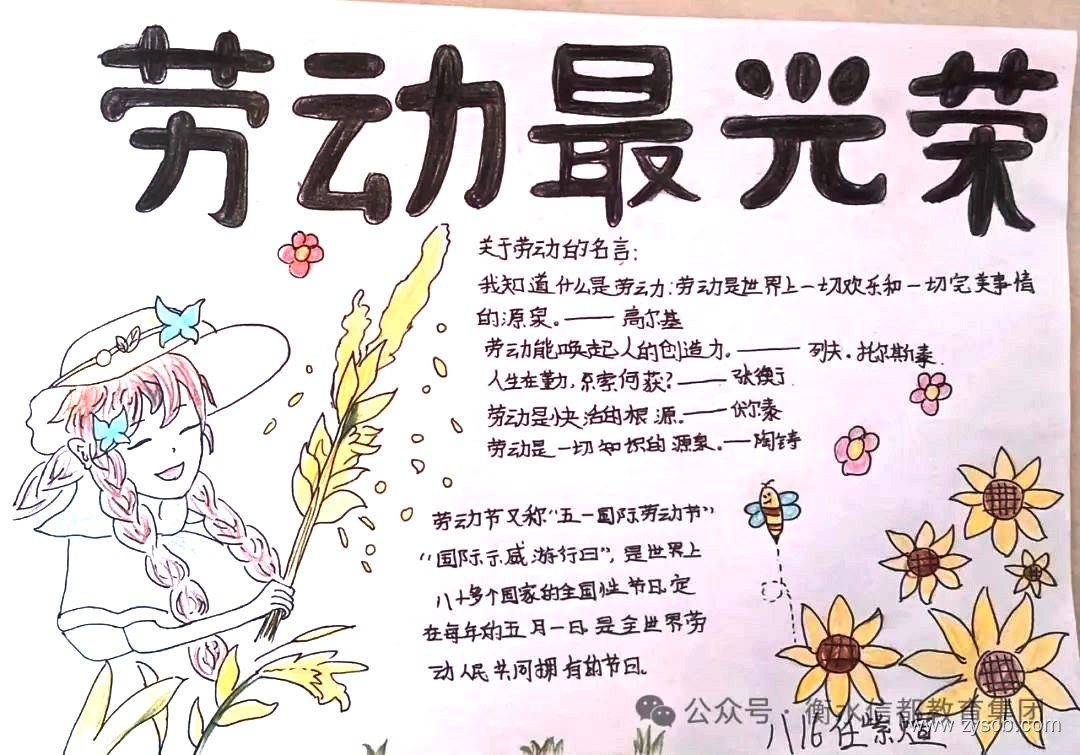 劳动最光荣
关于劳动的名言:
我知道什么是劳动:劳动是世界上一切欢乐和一切完美事情
的源泉。——高尔基
劳动能唤起人的创造力。——列夫·托尔斯泰
人生在勤,不索何获?——张衡
劳动是快活的根源。——伏尔泰
劳动是一切知识的源泉。——陶铸
劳动节又称“五一国际劳动节”
“国际示威游行日”,是世界上
八十多个国家的全国性节日。定
在每年的五月一日。是全世界劳
动人民共同拥有的节日。
公众号·衡水信都教育集团
www.zysob.com
八16 任紫